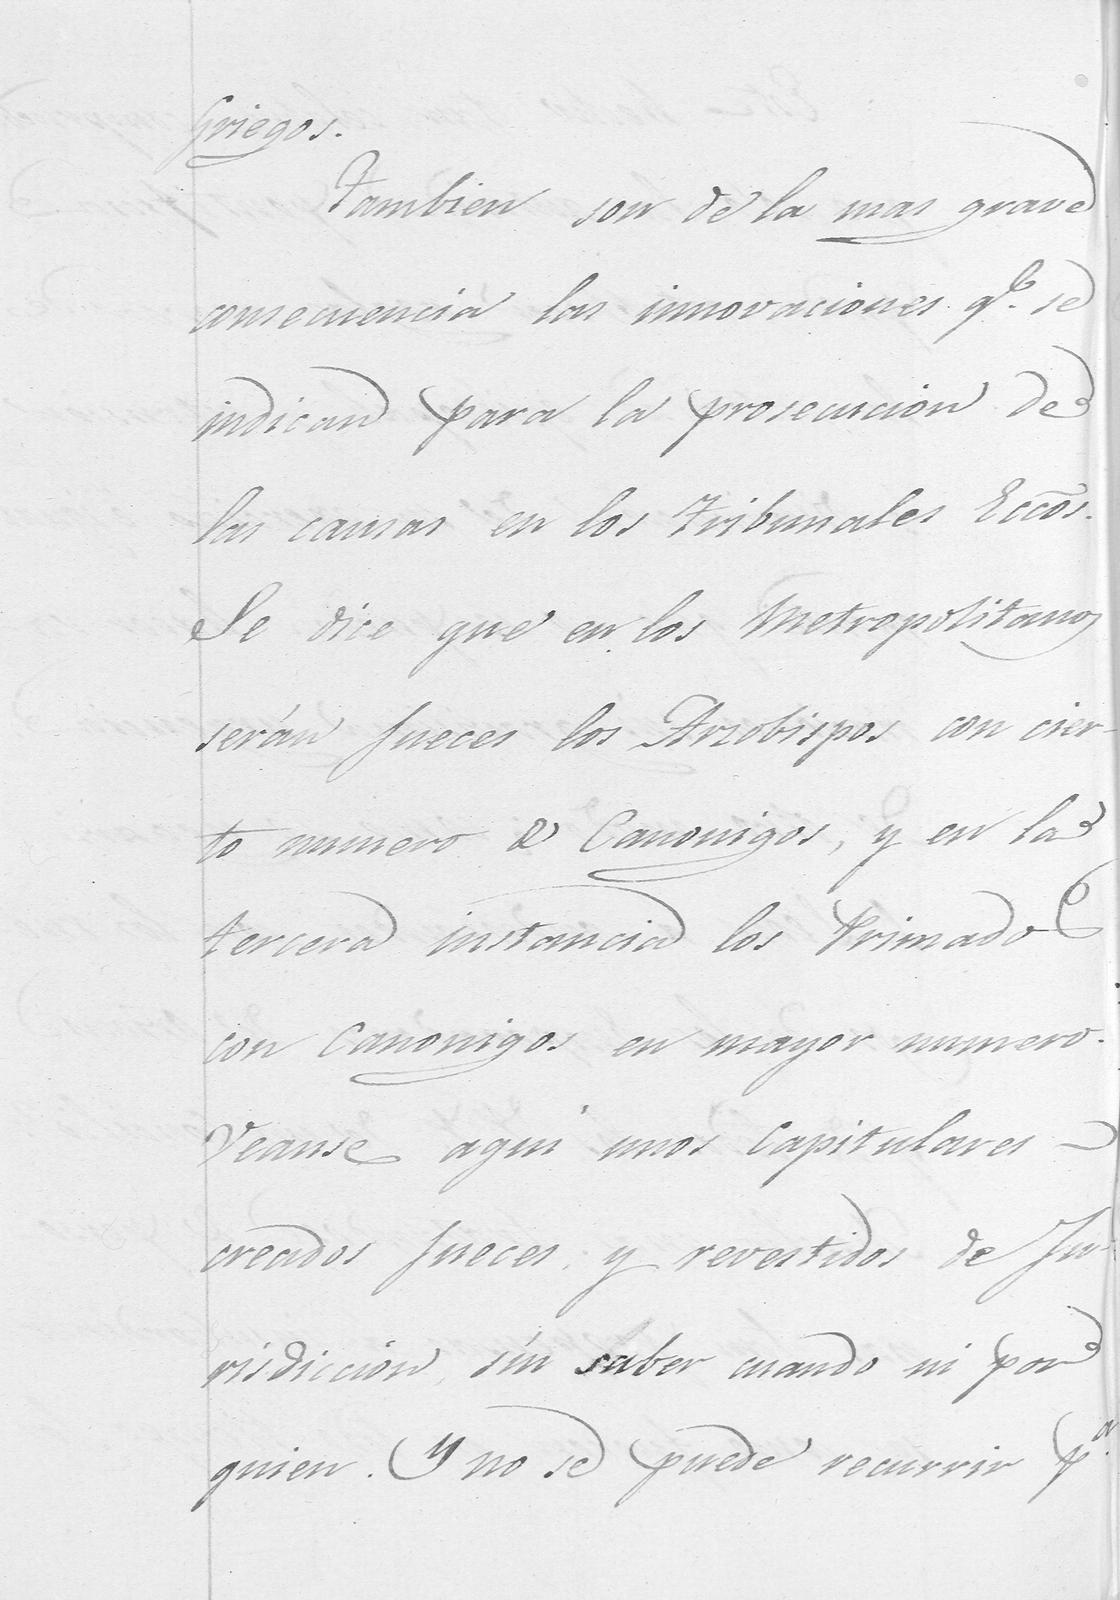 Griegos.
Tambien son de la mas grave
consecuencia las innovaciones q.e se
indican para la prosecucion de
las causas en los Tribunales Eccōs.
Se dice que en los Metropolitanos
serán Jueces los Arzobispos con cier-
to numero de Canonigos, y en la
tercera instancia los Primados
con Canonigos en mayor numero.
Veanse aqui unos Capitulares
creados Jueces, y revestidos de Ju-
risdiccion, sin saber cuando ni por
quien. Y no se puede recurrir p.a